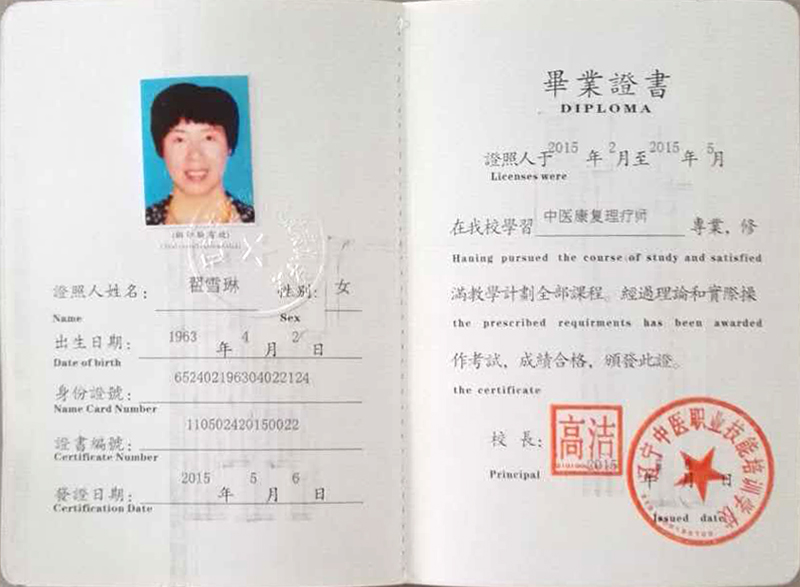 證照人姓名:
翟雪琳
性别:
女
Name
Sex
出生日期:
1963 年 4 月 2 日
Date of birth
身份證號:
652402196304022124
Name Card Number
證書編號:
110502420150022
Certificate Number
發證日期:
2015 年 5 月 6 日
Certification Date
畢業證書
DIPLOMA
證照人于2015 年 2 月至 2015 年 5 月
Licenses were
在我校學習 中医康复理疗师 專業，修
Hauing pursued the course of study and satisfied
滿教學計劃全部課程。經過理論和實際操
the prescribed requirments has been awarded
作考試，成績合格，頒發此證。
the certificate
校長:
高洁
Principal
2015 年 月 日
Issued date
辽宁中医职业技能培训学校